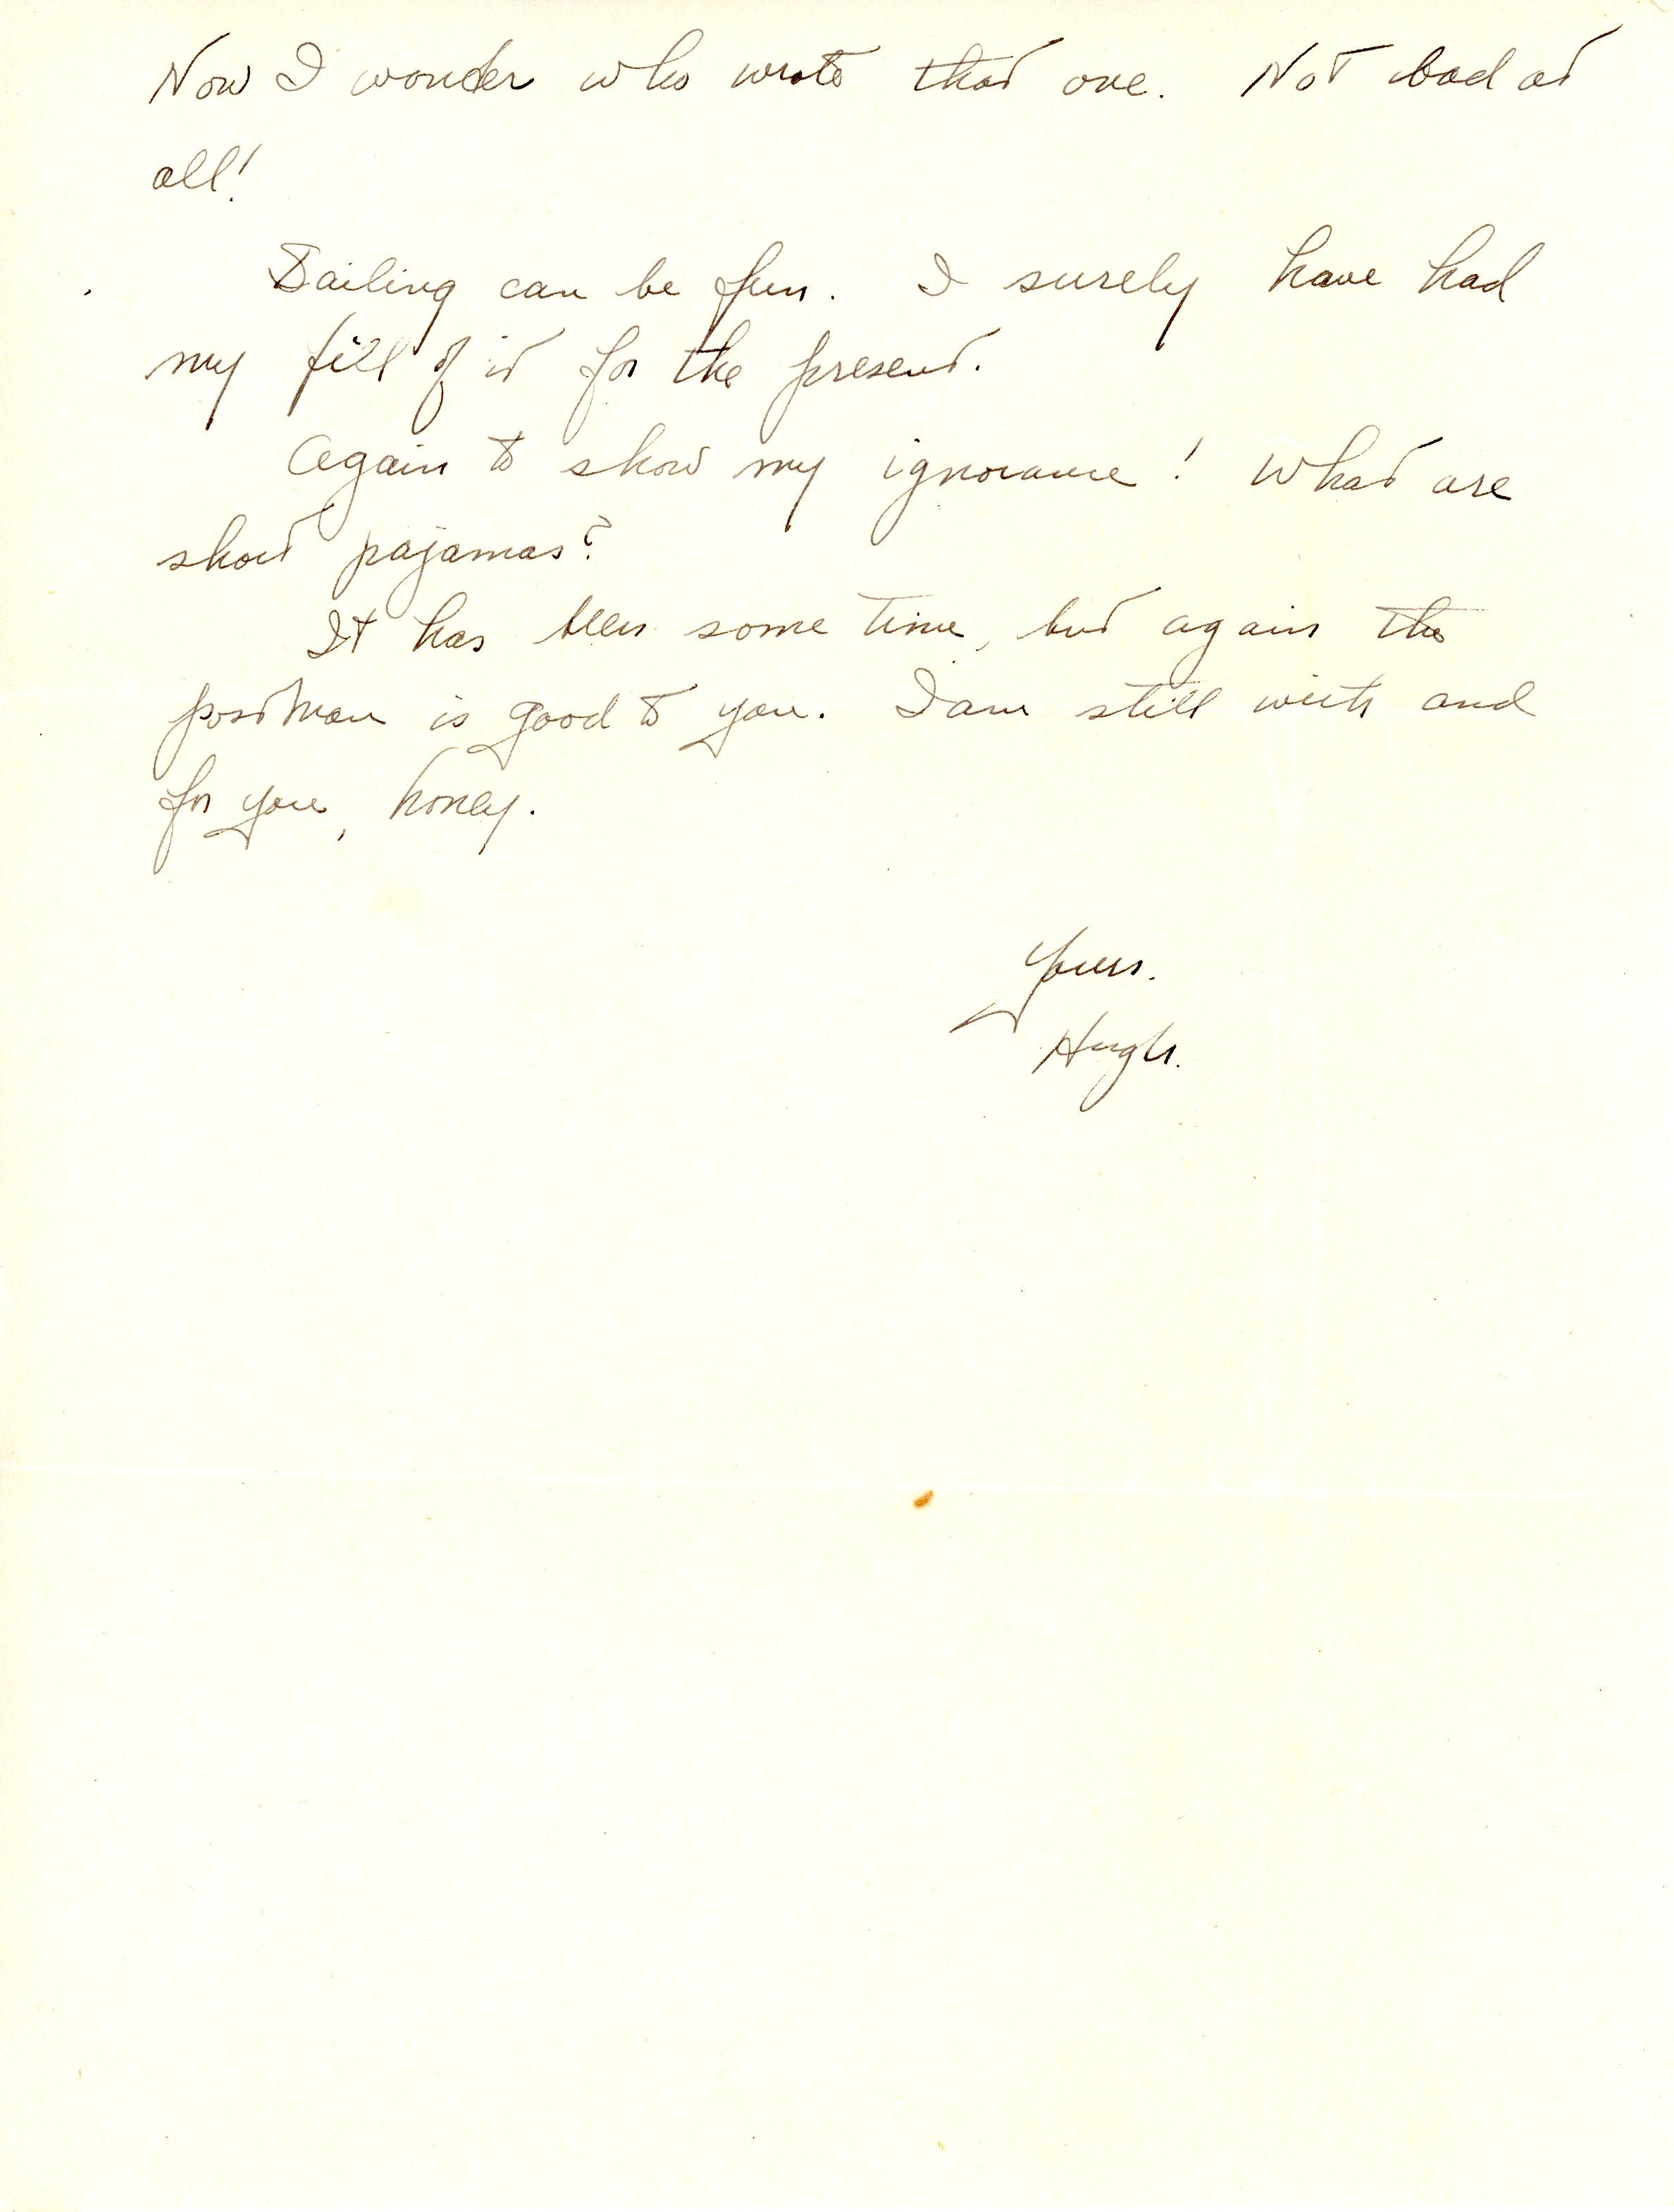 Now I wonder who wrote that one. Not bad at
all!
Sailing can be fun. I surely have had
my fill of it for the present.
Again to show my ignorance! What are
short pajamas?
It has been some time, but again the
postman is good to you. I am still with and
for you, honey.
Yours.
Hugh.